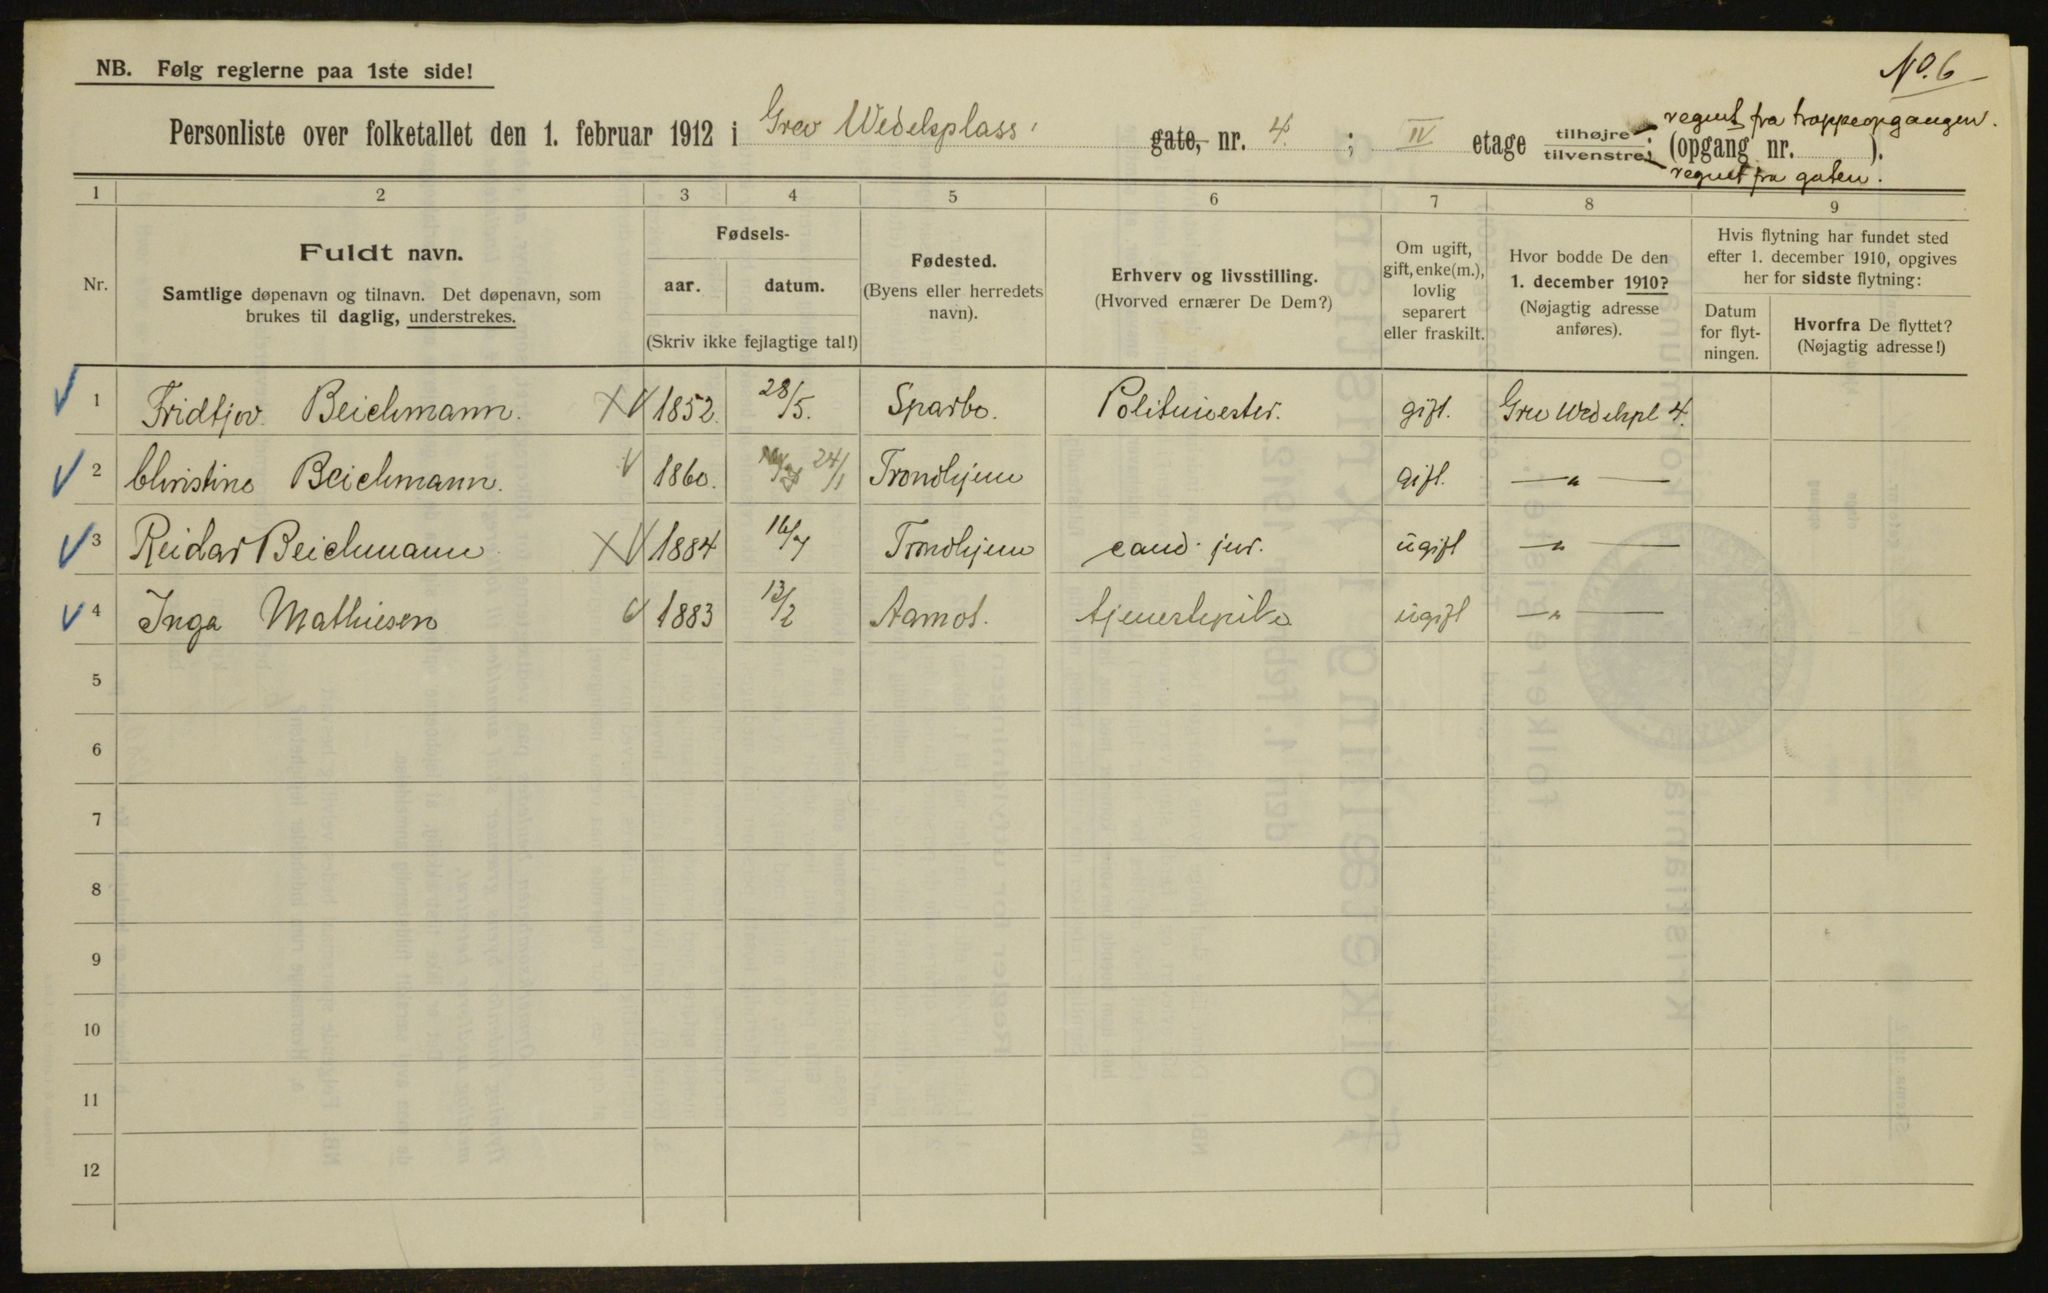 No. 6
NB. Følg reglerne paa 1ste side!
Personliste over folketallet den 1. februar 1912 i Grev Wedelsplass gate, nr. 4. ; IV etage tilhøjre tilvenstre; (opgang nr. ).
regnet fra trappeopgangen.
regnet fra gaten.
1 2 3 4 5 6 7 8 9
Nr.
Fuldt navn.
Samtlige døpenavn og tilnavn. Det døpenavn, som
brukes til daglig, understrekes.
Fødsels-
aar. datum.
(Skriv ikke fejlagtige tal!)
Fødested.
(Byens eller herredets
navn).
Erhverv og livsstilling.
(Hvorved ernærer De Dem?)
Om ugift,
gift, enke(m.),
lovlig
separert
eller fraskilt.
Hvor bodde De den
1. december 1910?
(Nøjagtig adresse
anføres).
Hvis flytning har fundet sted
efter 1. december 1910, opgives
her for sidste flytning:
Datum
for flyt-
ningen.
Hvorfra De flyttet?
(Nøjagtig adresse!)
1 Fridtjov Beichmann. 1852. 28/5. Sparbo. Politimester. gift. Grev Wedelspl 4.
2 Christine Beichmann. 1860. 24/1 Trondhjem gift. — " —
3 Reidar Beichmann 1884 16/7 Trondhjem cand. jur. ugift — " —
4 Inga Mathiesen 1883 13/2 Aamot. tjenestepike ugift — " —
5
6
7
8
9
10
11
12